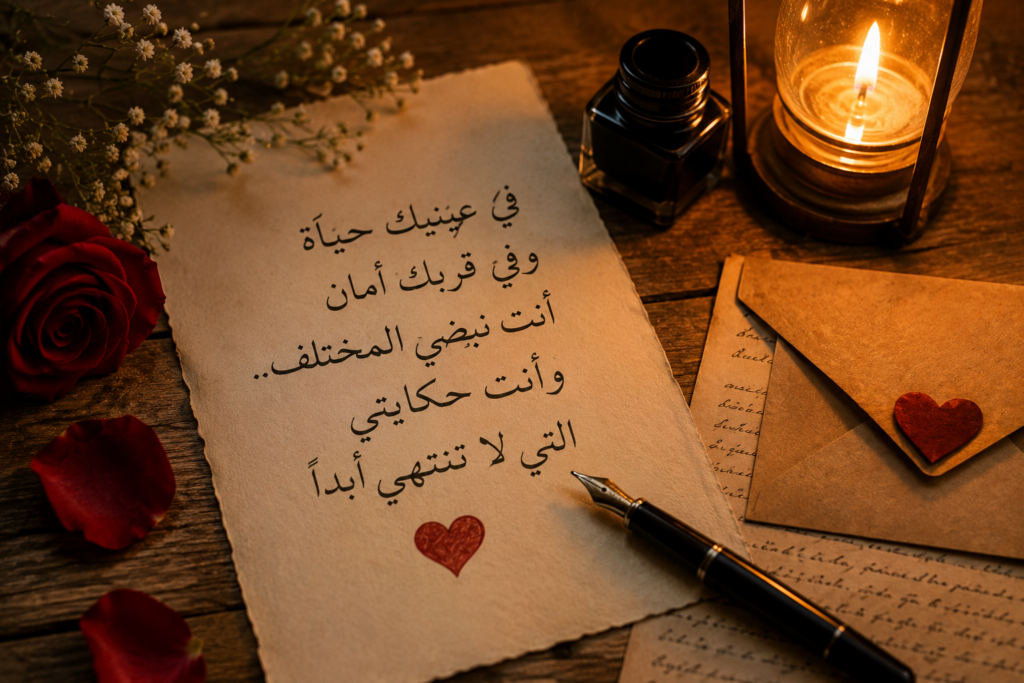 في عينيك حياة
وفي قربك أمان
أنت نبضي المختلف..
وأنت حكايتي
التي لا تنتهي أبداً